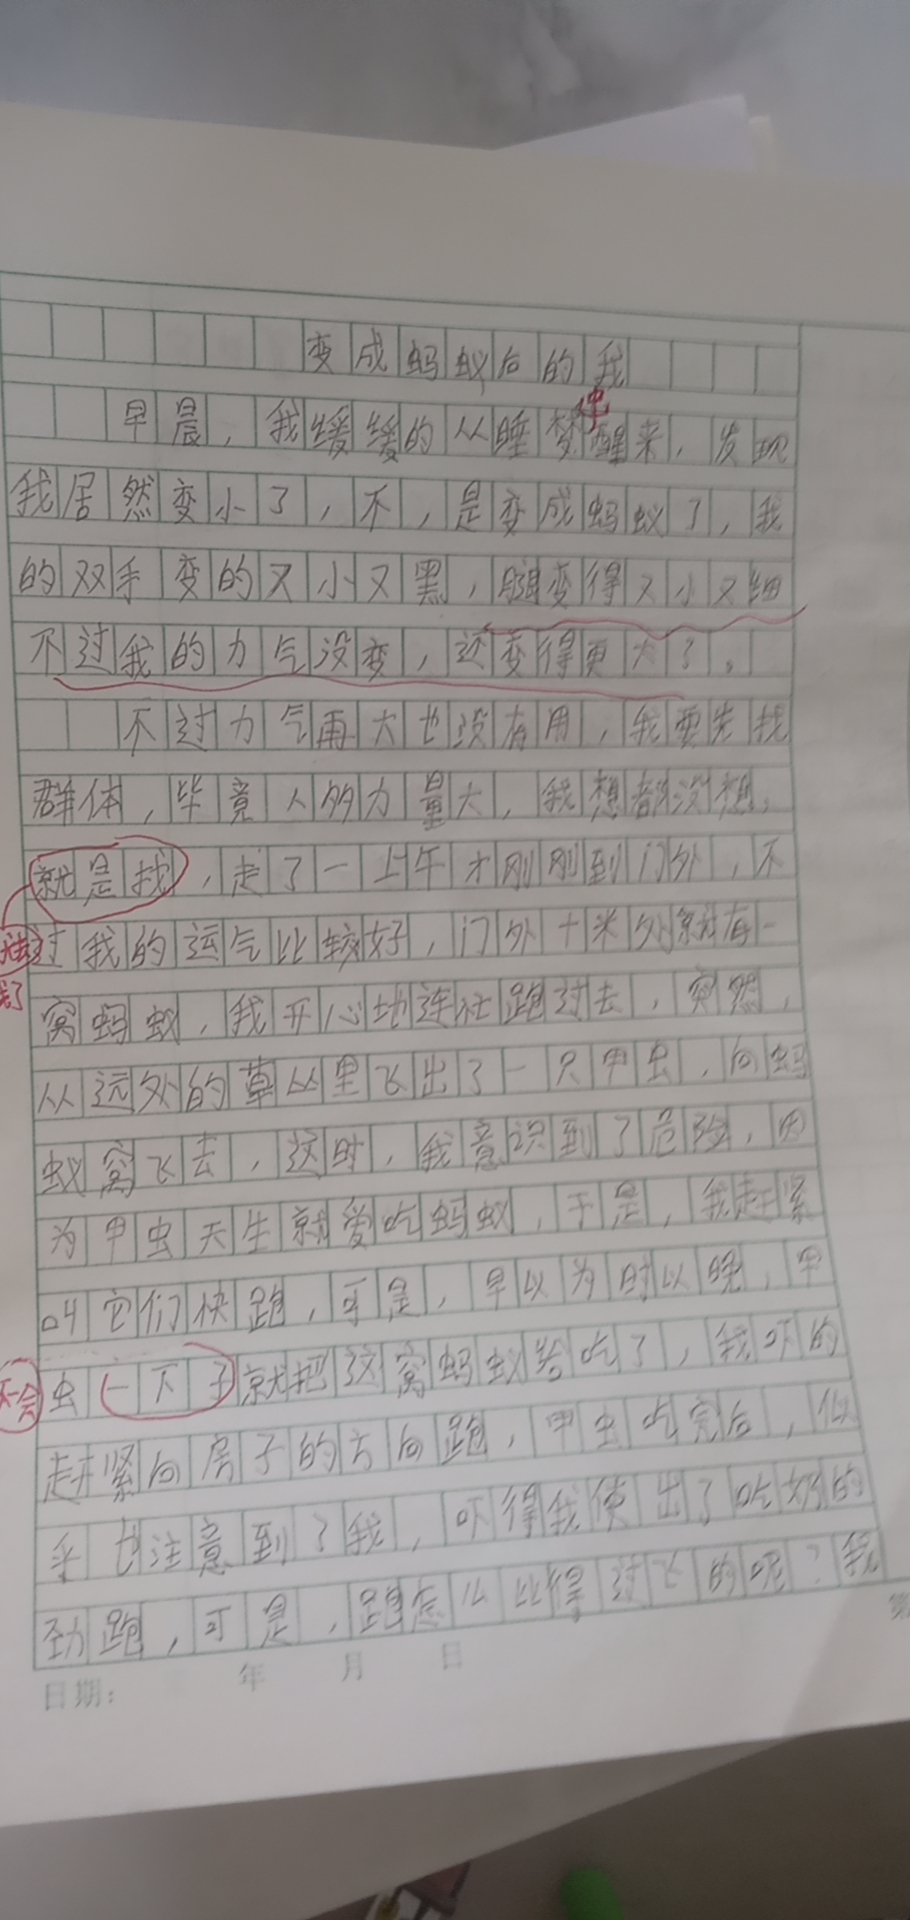 变成蚂蚁后的我
中
早晨，我缓缓的从睡梦醒来，发现
我居然变小了，不，是变成蚂蚁了，我
的双手变的又小又黑，腿变得又小又细
不过我的力气没变，还变得更大了。
不过力气再大也没有用，我要先找
群体，毕竟人多力量大，我想都没想，
就是找，走了一上午才刚刚到门外，不
过我的运气比较好，门外十米外就有一
窝蚂蚁，我开心地连忙跑过去，突然，
从远处的草丛里飞出了一只甲虫，向蚂
蚁窝飞去，这时，我意识到了危险，因
为甲虫天生就爱吃蚂蚁，于是，我赶紧
叫它们快跑，可是，早以为时以晚，甲
不会
虫一下子就把这窝蚂蚁给吃了，我吓的
赶紧向房子的方向跑，甲虫吃完后，似
乎也注意到了我，吓得我使出了吃奶的
劲跑，可是，跑怎么比得过飞的呢？我
日期： 年 月 日
第